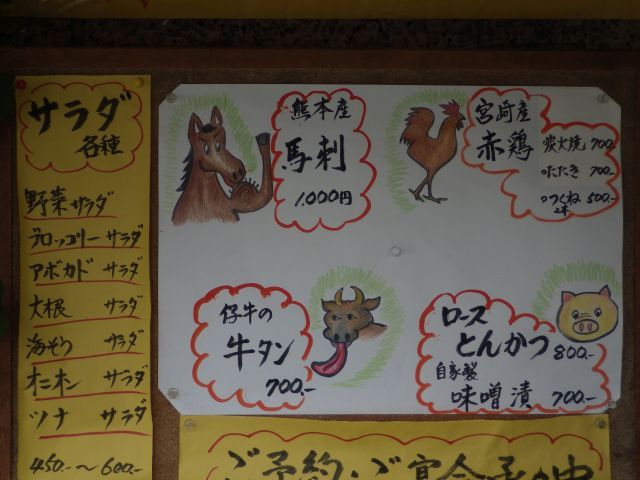 サラダ
各種
野菜サラダ
ブロッコリーサラダ
アボカド サラダ
大根 サラダ
海そう サラダ
オニオン サラダ
ツナ サラダ
450.-～600.-
熊本産
馬刺
1.000円
宮崎産
赤鶏
炭火焼 700.-
〃たたき 700.-
〃つくね 500.-
2本
仔牛の
牛タン
700.-
ロース
とんかつ 800.-
自家製
味噌漬 700.-
ご予約・ご宴会承り中